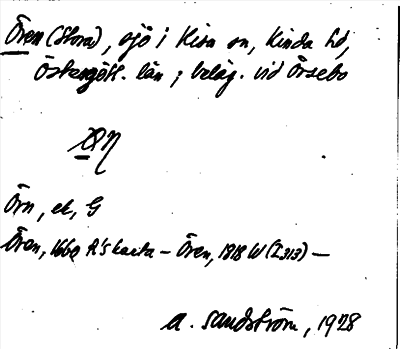 Ören (Stora), sjö i Kisa sn, Kinda hd,
Östergötl. län; beläg. vid Örsebo
Örn, ek, G
Ören, 1660 R's karta – Ören, 1818 W (I 313) –
A. Sandström, 1928